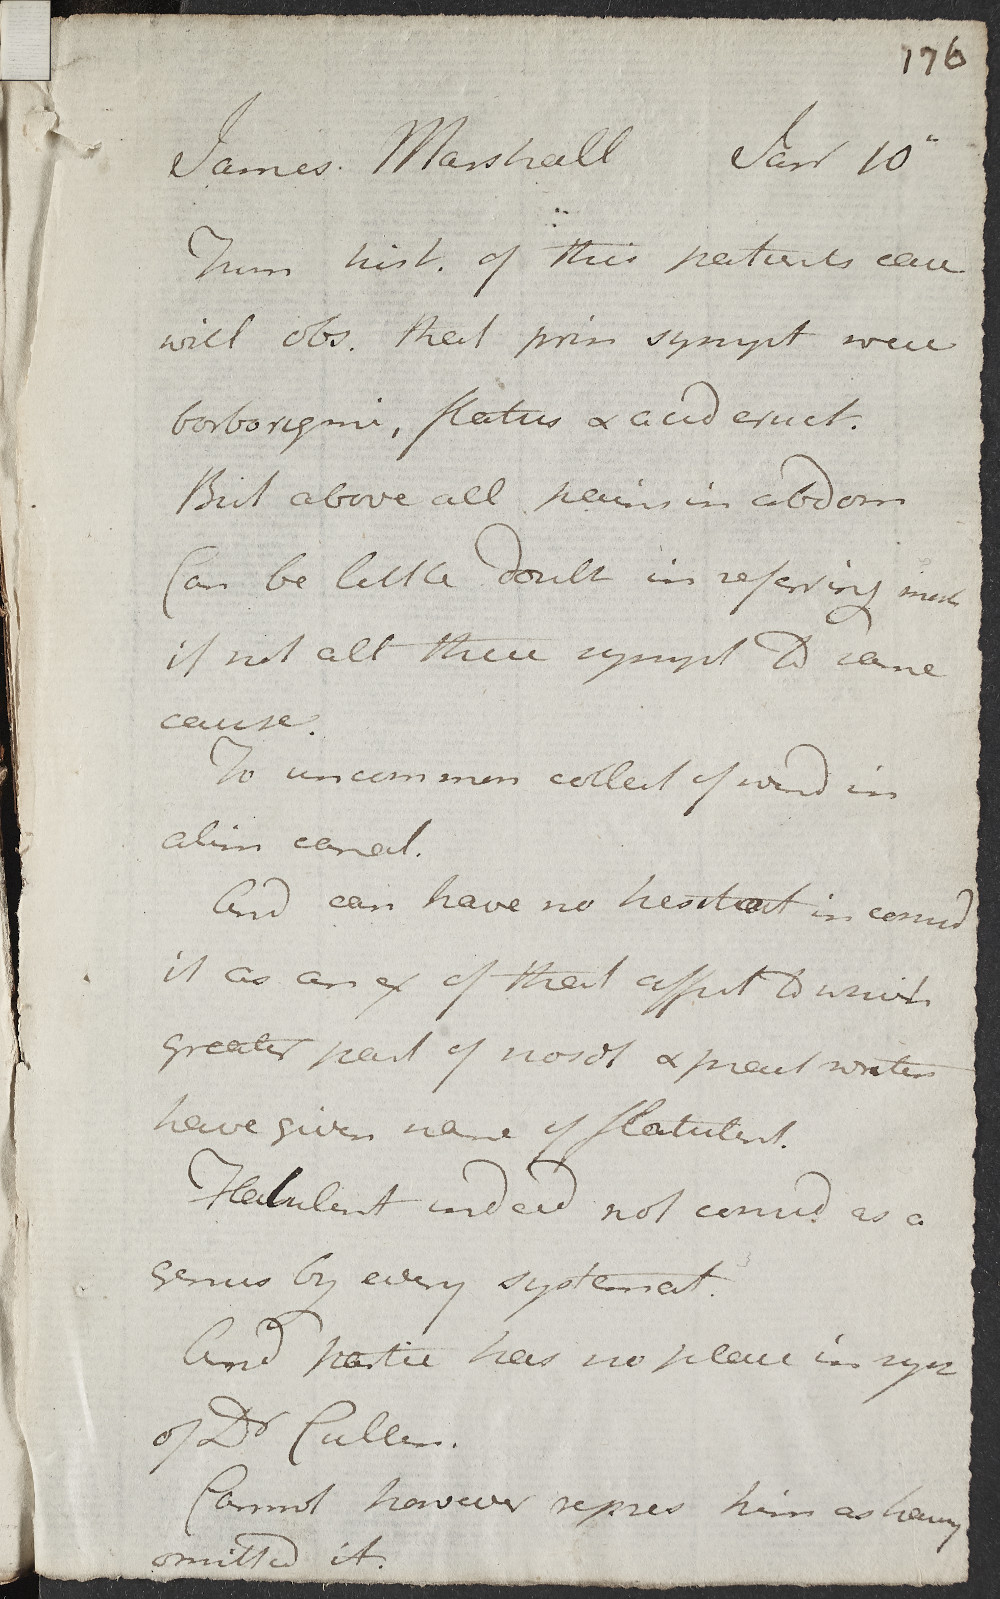 176
James Marshall Jan 10
From hist. of this patients case
will obs. that prin sympt were
borborigmi, flatus & acid eruct.
But above all pains in abdom
Can be little doubt in referring most
if not all these sympt to same
cause.
To uncommon collect of wind in
alim canal.
And can have no hesitat in consid
it as an ex of that affect to which
greater part of nosol & pract writers
have given name of flatulent.
Flatulent indeed not consid. as a
genus by every systemat.
And partic has no place in syst
of Dr Cullen.
Cannot however repres him as having
omitted it.